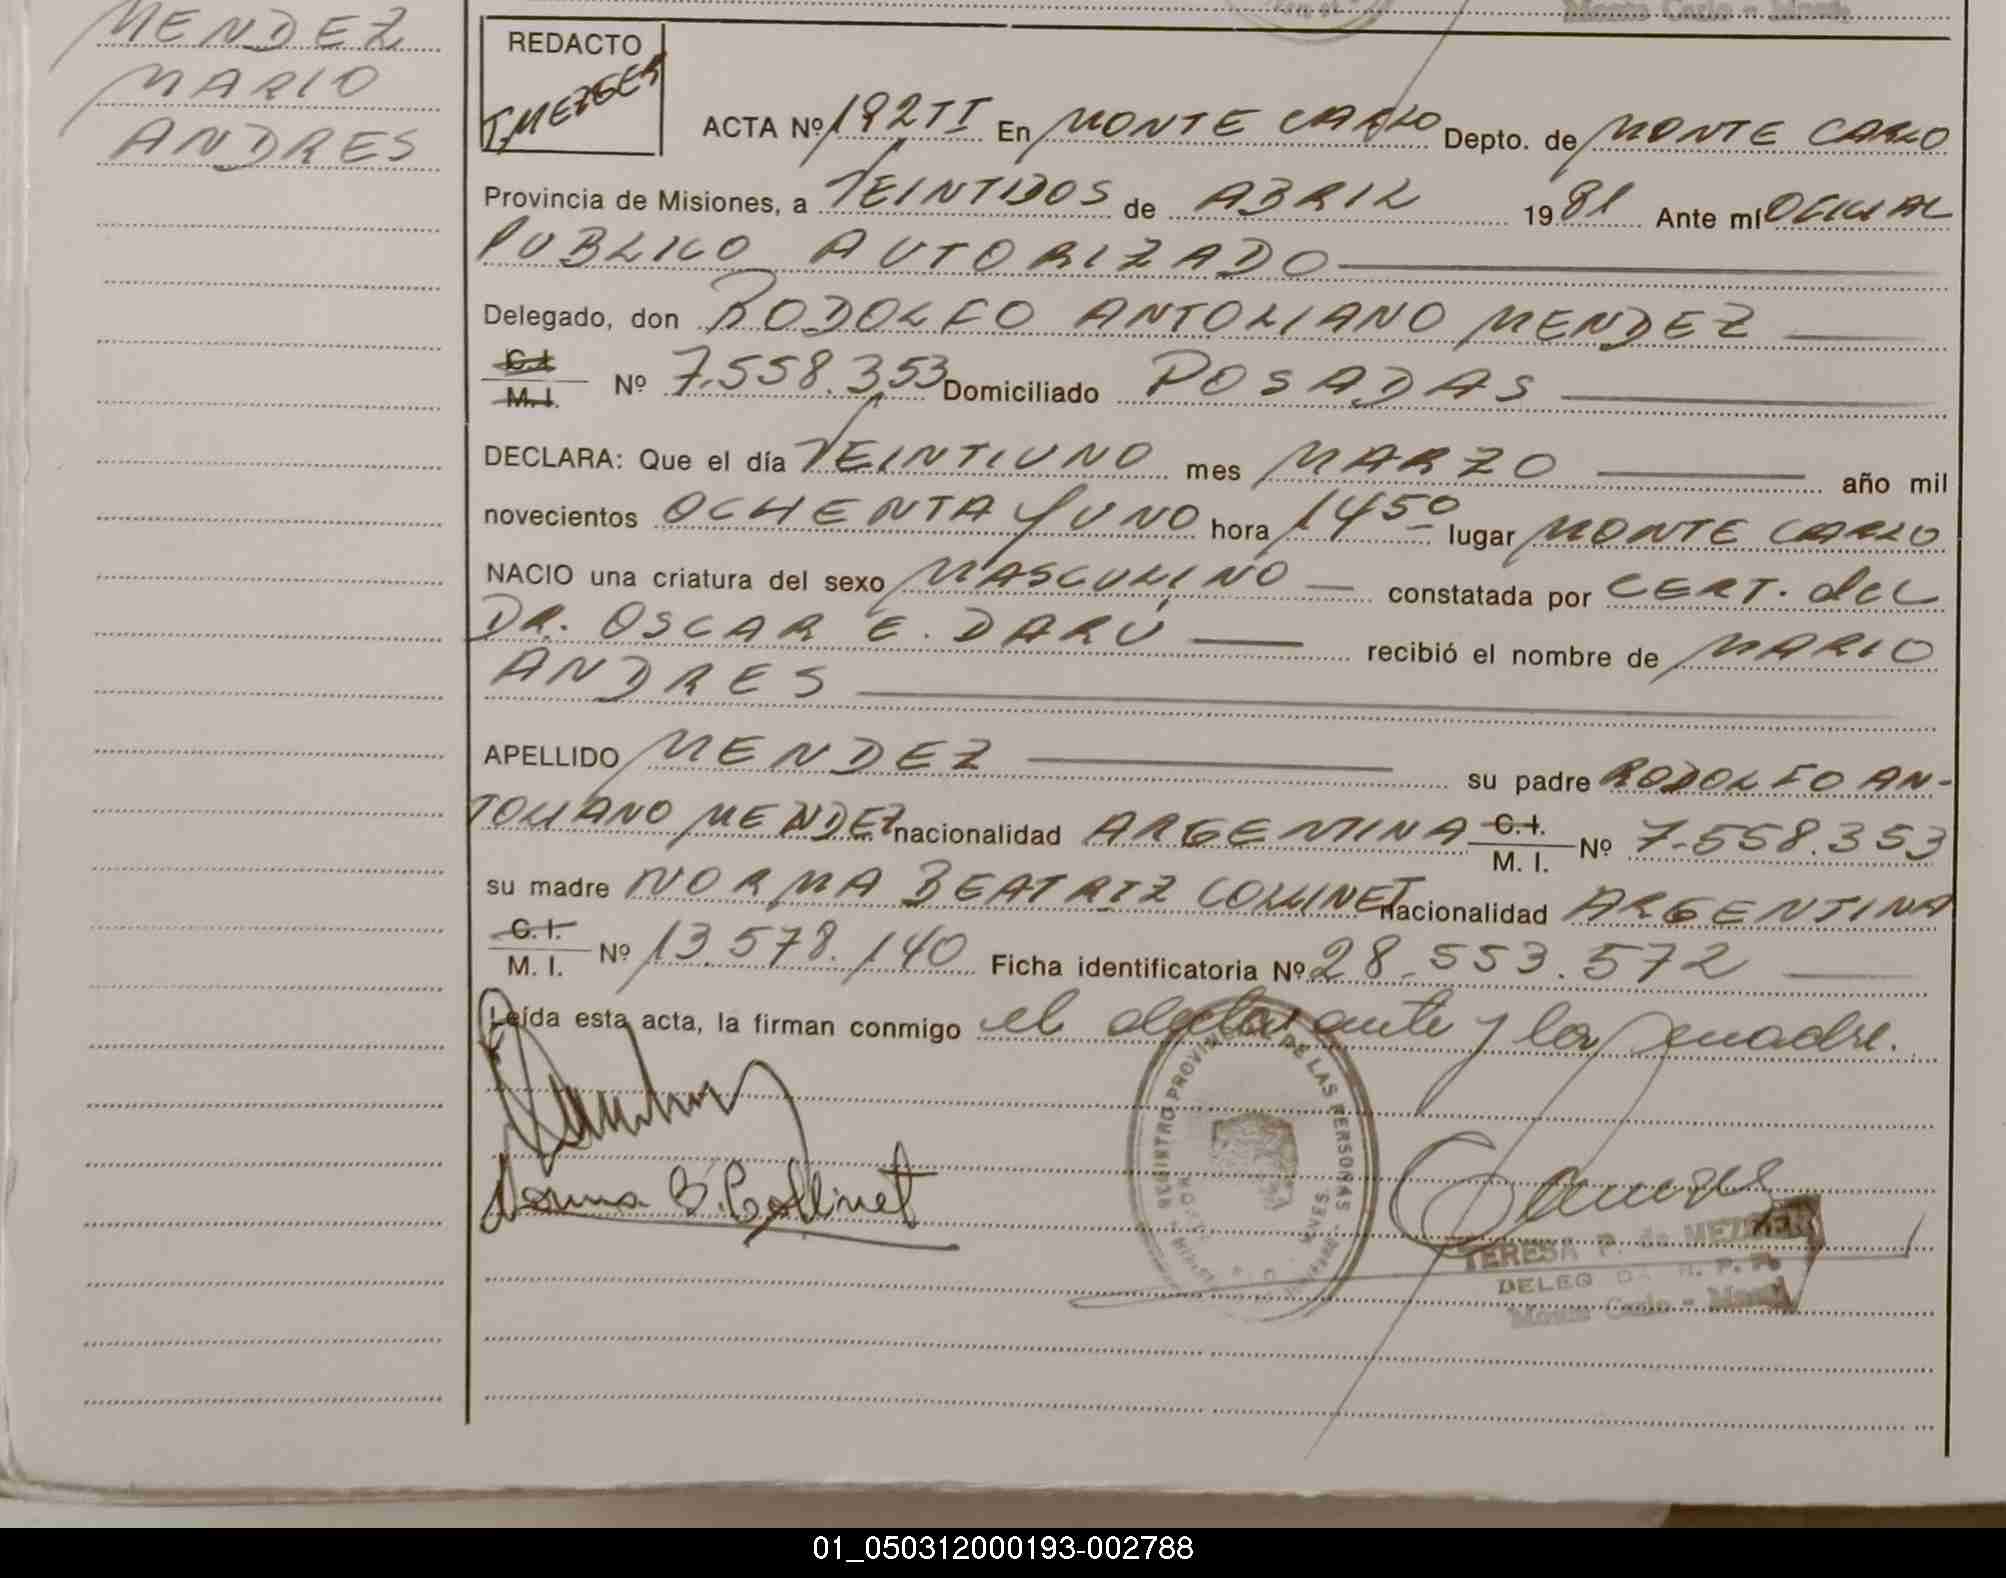 MENDEZ
MARIO
ANDRES
REDACTO
T, MEZGER
Monte Carlo -
ACTA Nº 192 TI En MONTE CARLO Depto. de MONTE CARLO
Provincia de Misiones, a VEINTIDOS de ABRIL 1981 Ante mí OFICIAL
PUBLICO AUTORIZADO
Delegado, don RODOLFO ANTOLIANO MENDEZ
C.I. M. I. Nº 7.558.353 Domiciliado POSADAS
DECLARA: Que el día VEINTIUNO mes MARZO año mil
novecientos OCHENTA Y UNO hora 1450 lugar MONTE CARLO
NACIO una criatura del sexo MASCULINO constatada por CERT. del
DR. OSCAR E. DARÚ recibió el nombre de MARIO
ANDRES
APELLIDO MENDEZ su padre RODOLFO AN-
TOLIANO MENDEZ nacionalidad ARGENTINA C.I. M. I. Nº 7.558.353
su madre NORMA BEATRIZ COLLINET nacionalidad ARGENTINA
C.I. M. I. Nº 13.578.140 Ficha identificatoria Nº 28.553.572
Leída esta acta, la firman conmigo el declarante y la madre.
Norma B. Collinet
REGISTRO PROVINCIAL DE LAS PERSONAS
TERESA P. de MEZGER
DELEGADA R. P. P.
Monte Carlo - Mnes.
01_050312000193-002788